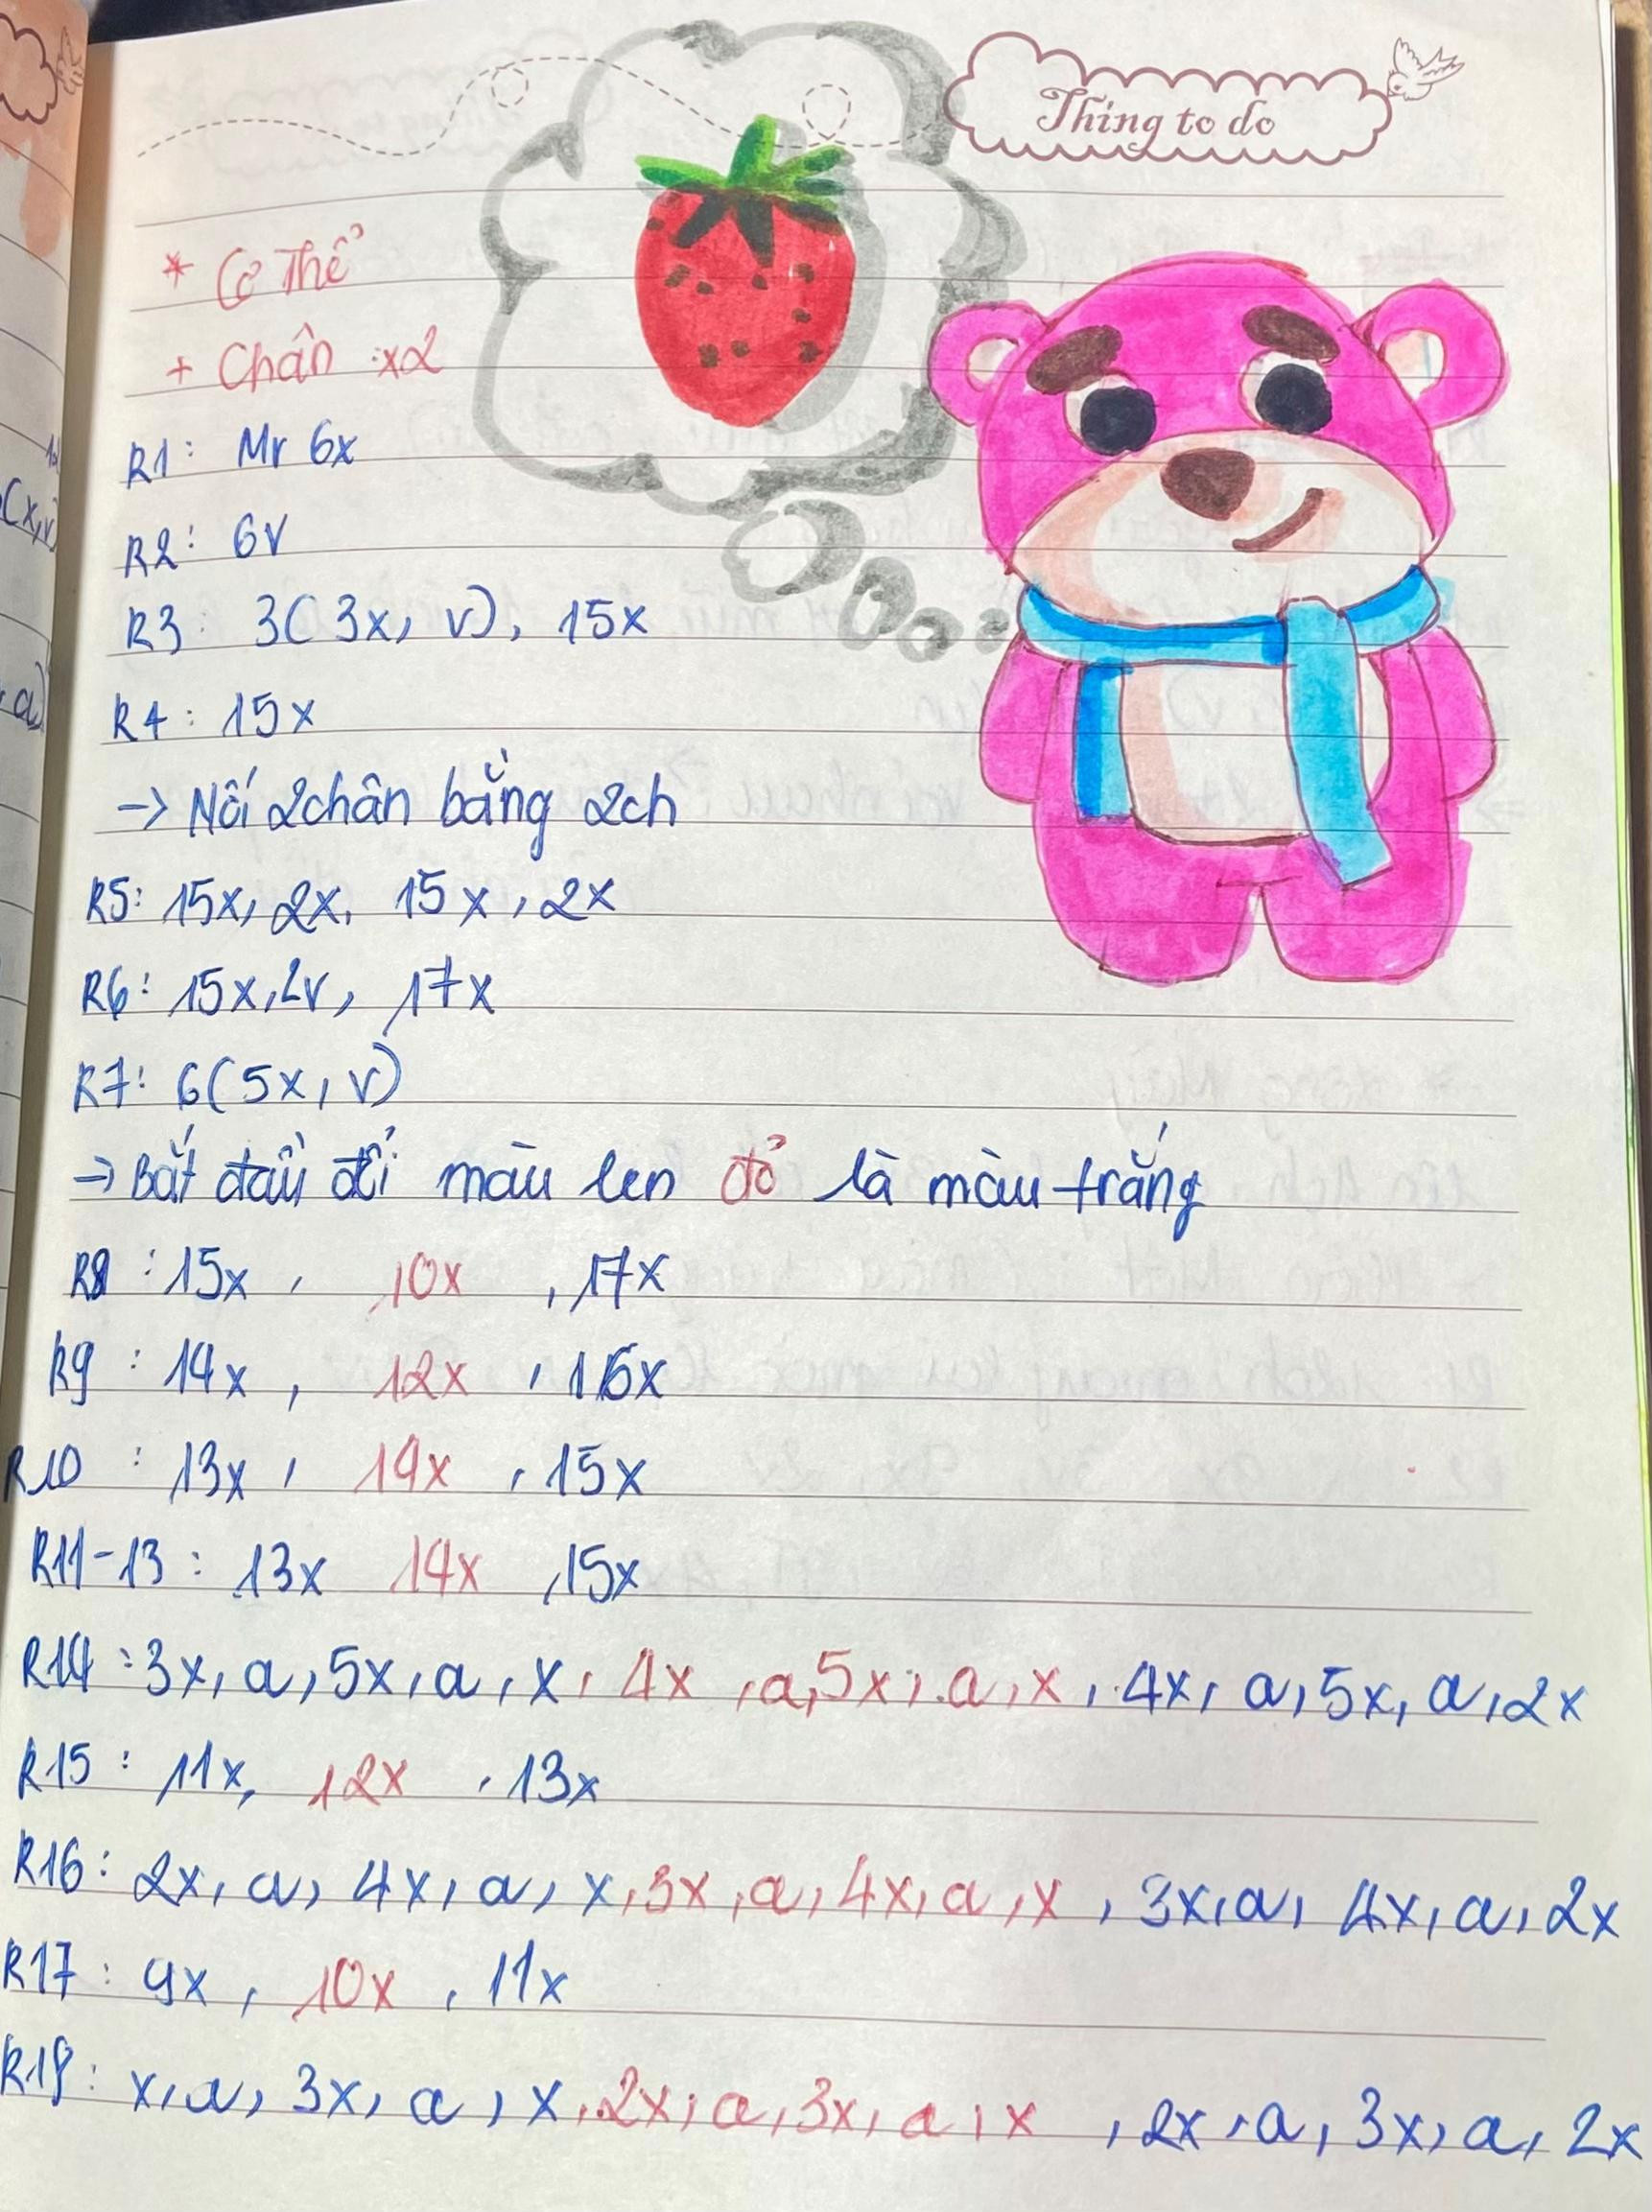 Thing to do
* Cơ Thể
+ Chân : x2
R1: Mr 6x
R2: 6V
R3: 3(3x, v), 15x
R4: 15x
-> Nối 2chân bằng 2ch
R5: 15x, 2x, 15x, 2x
R6: 15x, 2v, 17x
R7: 6(5x, v)
-> Bắt đầu đổi màu len đỏ là màu trắng
R8 : 15x, 10x, 17x
R9 : 14x, 12x, 16x
R10 : 13x, 14x, 15x
R11-13 : 13x 14x, 15x
R14 : 3x, a, 5x, a, x, 4x, a, 5x, a, x, 4x, a, 5x, a, 2x
R15 : 11x, 12x, 13x
R16: 2x, a, 4x, a, x, 3x, a, 4x, a, x, 3x, a, 4x, a, 2x
R17 : 9x, 10x, 11x
R18: x, a, 3x, a, x, 2x, a, 3x, a, x, 2x, a, 3x, a, 2x
(x,v)
a)